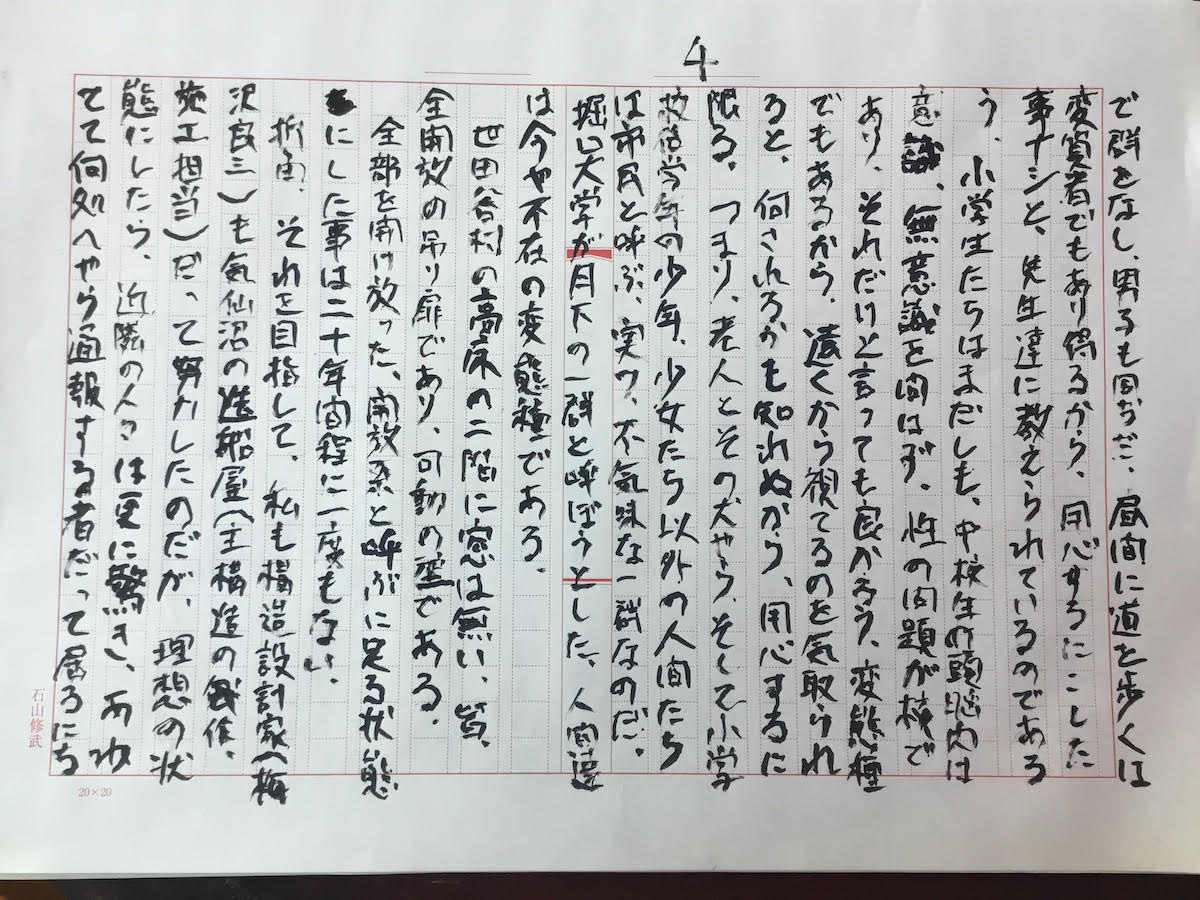 4
で群をなし、男子も同なだ、昼間に道を歩くは
変質者でもあり得るから、用心するにこした
事ナシと、先生達に教えられているのである
う。小学生たちはまだしも、中校生の頭脳内は
意識、無意識を問はず、性の問題が核で
あり、それだけと言っても良かろう、変態種
でもあるから、遠くから視てるのを気取られ
ると、何されるかも知れぬから、用心するに
限る。つまり、老人とその犬やら、そして小学
校低学年の少年、少女たち以外の人間たち
は市民と呼ぶ、実ワ、不気味な一群なのだ。
堀口大学が月下の一群と呼ぼうとした、人間達
は今や不在の変態種である。
世田谷村の高床の二階に窓は無い、皆、
全開放の吊り扉であり、可動の壁である。
全部を開け放った、開放系と呼ぶに足る状態
にした事は二十年間程に一度もない。
折角、それを目指して、私も構造設計家(梅
沢良三)も気仙沼の造船屋(主構造の製作、
施工担当)だって努力したのだが、理想の状
態にしたら、近隣の人々は更に驚き、あわ
てて何処へやら通報する者だって居るにち
石山修武
20×20